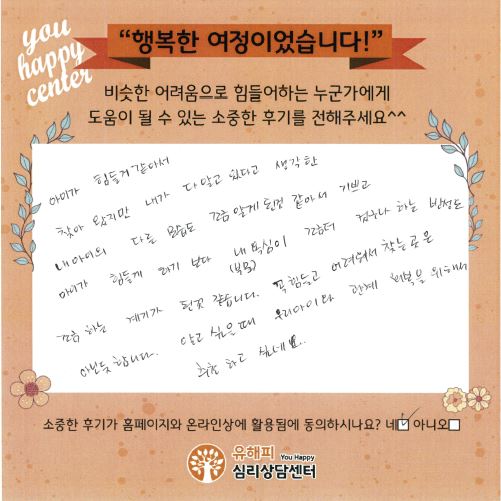 you
happy
center
“행복한 여정이었습니다!”
비슷한 어려움으로 힘들어하는 누군가에게
도움이 될 수 있는 소중한 후기를 전해주세요^^
아이가 힘들게 같아서
찾아 왔지만 내가 다 알고 있다고 생각한
내아이의 다른 모습도 조금 알게 된것 같아서 기쁘고
아이가 힘들게 하기 보다 내 욕심이 그랬나 하는 반성도
(부모)
조금 하는 계기가 된것 같습니다. 꼭 힘들고 어려워서 찾는 곳은
아닌듯 합니다. 알고 싶을때 우리아이와 관계 회복을 위해서
추천 하고 싶네요..
소중한 후기가 홈페이지와 온라인상에 활용됨에 동의하시나요? 네☑ 아니오☐
유해피 You Happy
심리상담센터